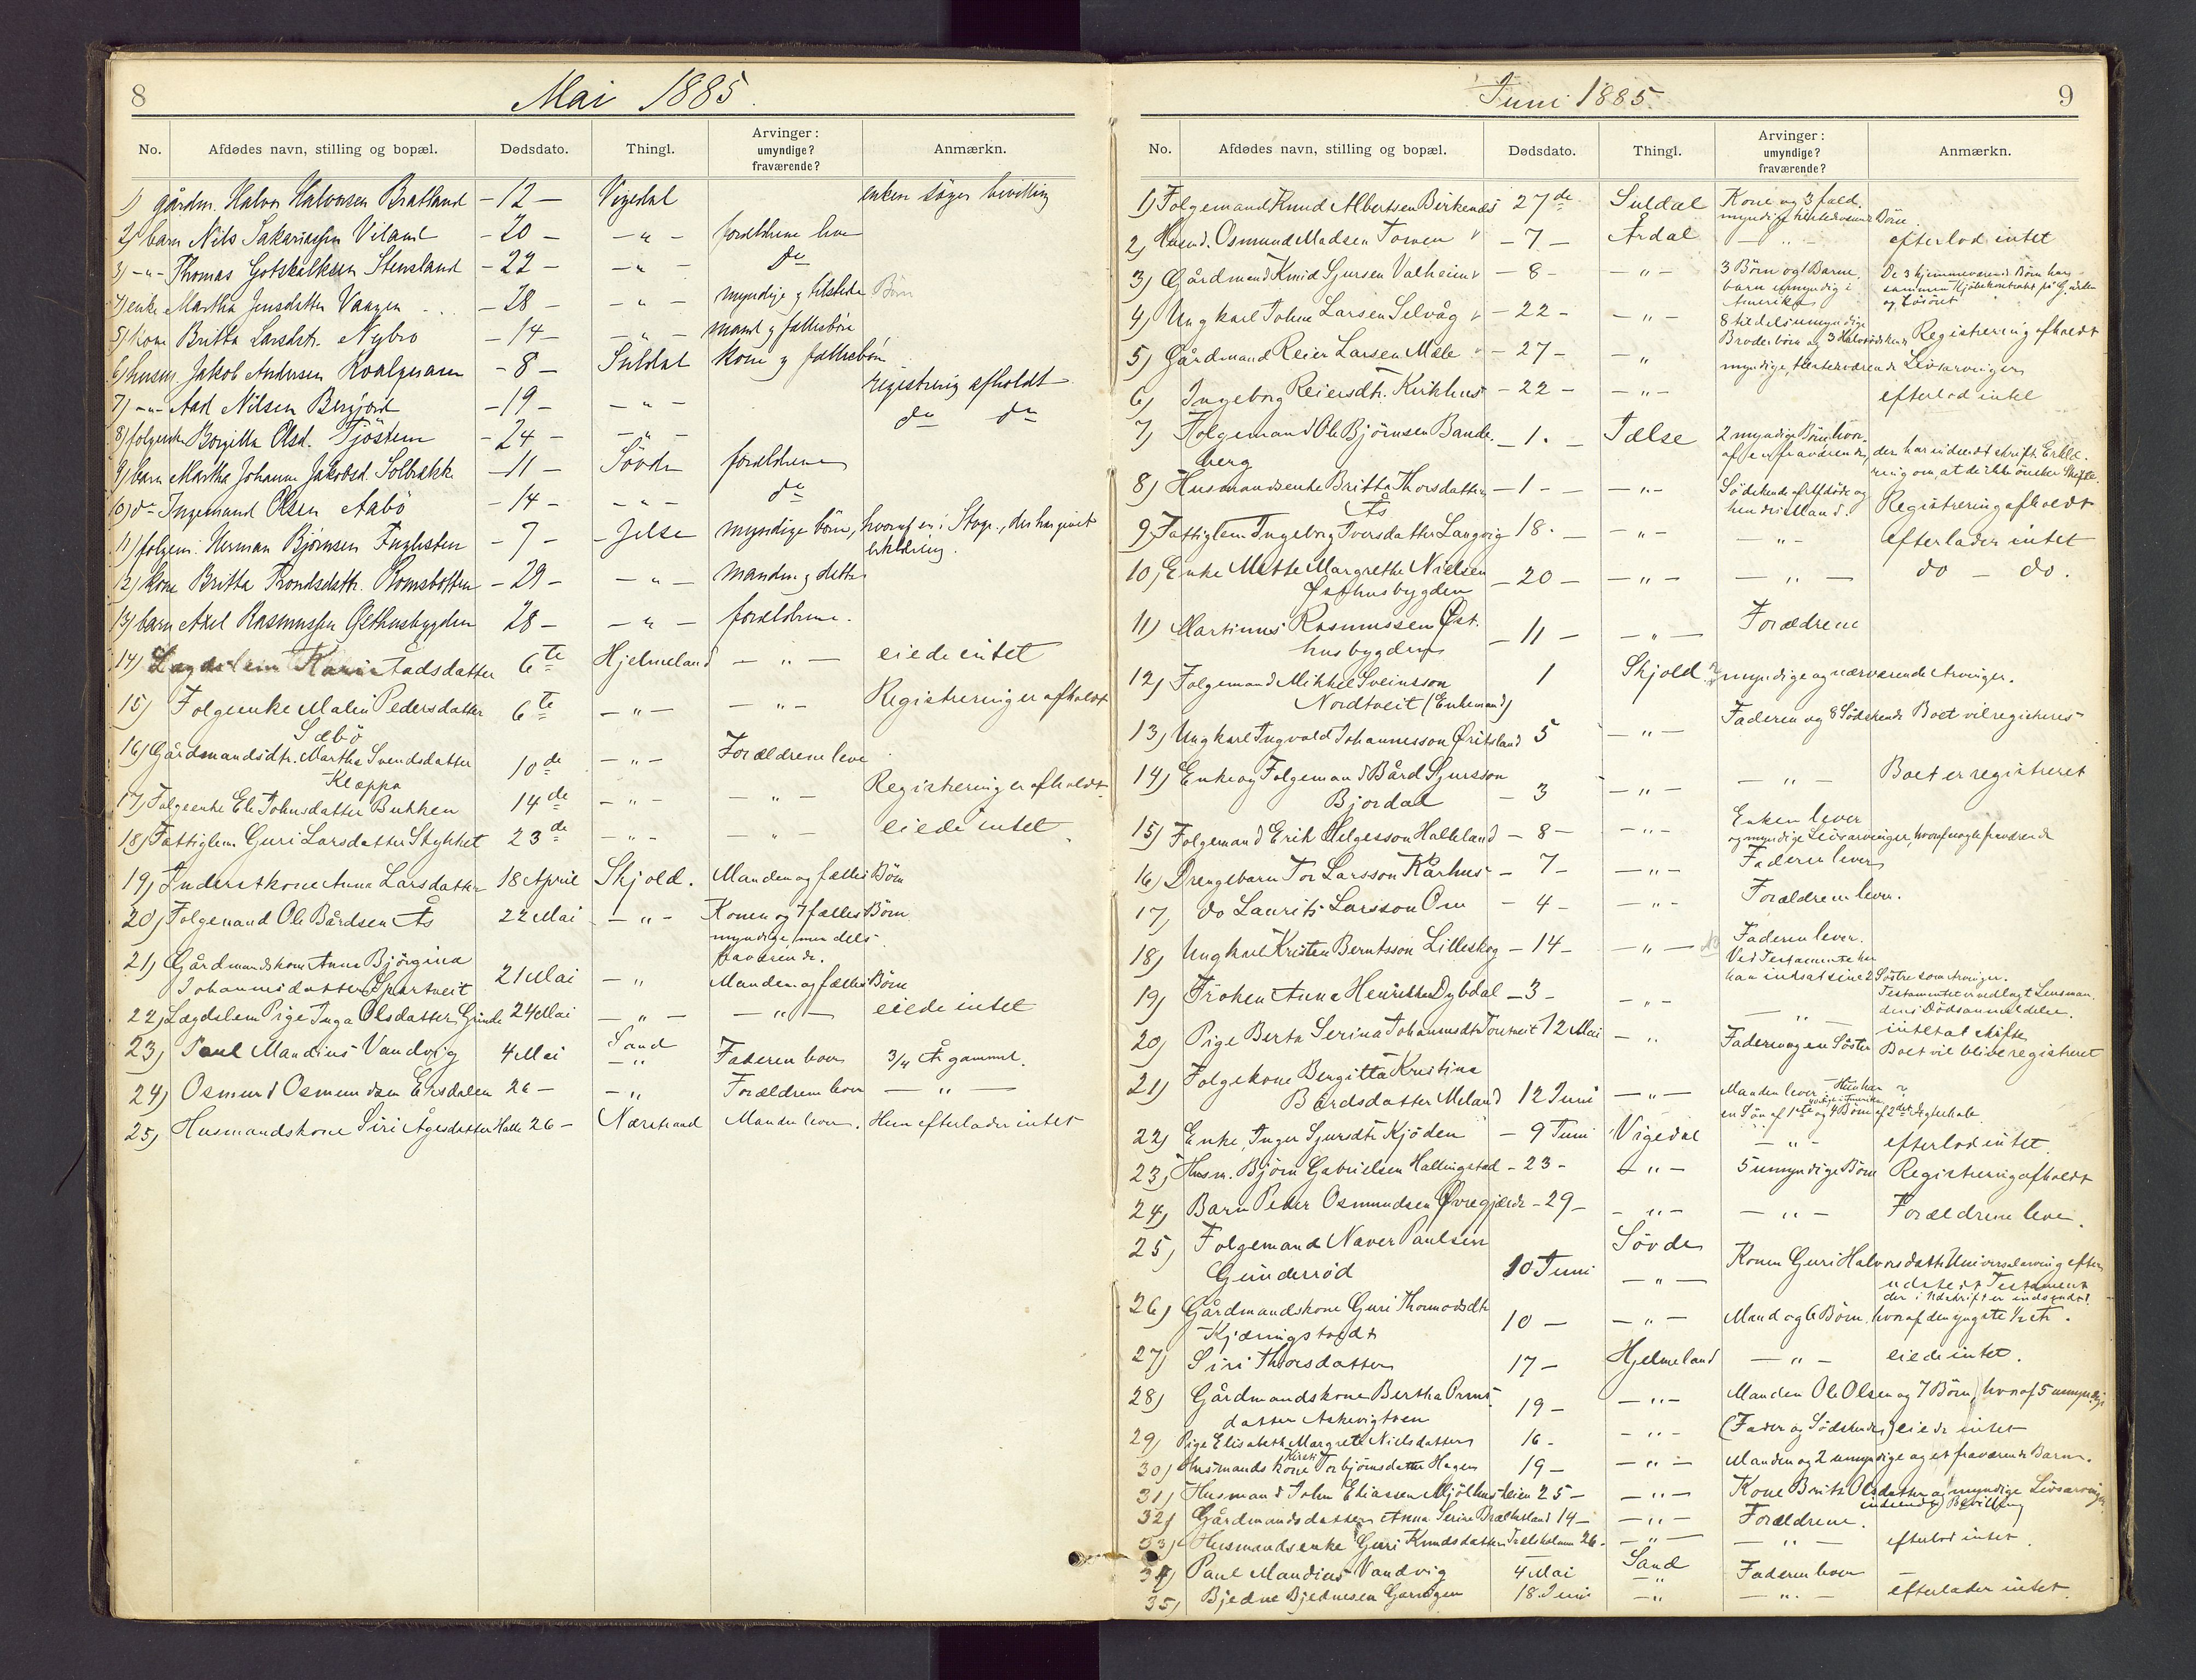 8
Mai 1885.
No. Afdødes navn, stilling og bopæl. Dødsdato. Thingl. Arvinger: umyndige? fraværende? Anmærkn.
1) gårdm. Halvor Halvorsen Bratland - 12 - Vigedal enken søger bevilling
2) barn Nils Sakariassen Viland - 20 - - " - forældrene lever
3) - " - Thomas Gotskalksen Stensland - 22 - - " - do
4) enke Martha Jensdatter Vaagen - 28 - - " - myndige g tilstede Børn
5) kone Britta Larsdtr. Nybro - 14 - - " - mand g fællesbørn
6) husm. Jakob Andersen - 8 - Suldal kone g fællesbørn
7) - " - Aad Nilsen Bergjord - 19 - - " - registrering afholdt
8) Borgilla Olsd. Tjöstem - 24 - - " - do do
9) barn Martha Johanne Jakobsd. Solbrekk - 11 - Sövde forældrene
10) do Ingemund Olsen Aabö - 14 - - " - do
11) folgem. Herman Björnsen Fuglesten - 7 - - Jelse myndige börn, hvoraf en i Stvgr., der har givet
erklæring.
12) kone Britta Trondsdattr. Romsbotten - 29 - - " - manden g datter
13) barn Axel Rasmussen Østhusbygden 28 - - " - forældrene.
14) Lægdslem Kari Aadsdatter 6te Hjelmeland - " - eiede intet
15) Folgeenke Malin Pedersdatter 6te - " - - " - Registrering er afholdt
Sæbö
16) Gårdmandsdtr. Martha Svendsdatter 10de - " - Forældrene leve
Kleppa
17) Folgeenke Eli Johnsdatter Bukken 14de - " - - " - Registrering er afholdt.
18) Fattiglem Guri Larsdatter Stykket 23de - " - - " - eiede intet
19) Inderstkone Anna Larsdatter 18 April Skjold. Manden og fælles Börn
20) Folgemand Ole Bårdsen Ås 22 Mai - " - Konen og 7 fælles Börn
myndige, men dels
fraværende.
21) Gårdmandskone Anna Bjørgina
Johannesdatter 21 Mai - " Manden og fælles Börn
22) Lægdslem Pige Inga Olsdatter Grinde 24 Mai - " - - " - eiede intet
23) Paul Mandius Vandvig 4 Mai Sand - " Faderen lever 3/4 År gammel.
24) Osmund Osmundsen Ersdalen 26 - - " Forældrene lever - " -
25) Husmandskone Siri Ågesdatter Halle 26 - Nærstrand Manden lever. Hun efterlader intet
Juni 1885.
9
No. Afdødes navn, stilling og bopæl. Dødsdato. Thingl. Arvinger: umyndige? fraværende? Anmærkn.
1) Folgemand Knud Albertsen Birkenes 27de Suldal Kone og 3 fuld.
myndige tilstedeværende Børn
2) Husmd. Osmund Madsen Tomen - 7 - Årdal - " - efterlod intet
3) Gårdmand Knud Sjursen Valheim - 8 - - " - 3 Börn og 1 Barne De 3 hjemmeværende Børn har
barn umyndig i sammen Kjöbekontrakt på Gården
Amerika og Lösöret
4) Ungkarl John Larsen Selvåg - 22 - - " - 8 tildels umyndige
Broderbörn og 3 Halvsödskende Registrering afholdt
5) Gårdmand Reier Larsen Mæle - 27 - - " myndige, tilstedeværende Livsarvinger
6) Ingeborg Reiersdtr. Kirkhus - 22 - - " - efterlod intet
7) Folgemand Ole Bjørnsen Bande- - 1. - Jælse 2 myndige Børn hvor-
berg af en fraværende, der har indsendt skriftl. Erklæ-
ring om, at de ikke önsker Skifte.
8) Husmandsenke Britta Thorsdatter - 1 - - " - Södskende af Afdøde og
Ås hendes Mand. Registrering afholdt
9) Fattiglem Ingeborg Iversdatter Langvig 18. - " - - " - efterlader intet
10) Enke Mette Margrethe Nielsen - 20 - - " - - " - do - do.
Østhusbygden
11) Martinus Rasmussen Øst- - 11 - - " - Forældrene
husbygden
12) Folgemand Mikkel Sveinsson 1 Skjold. myndige og nærværende Arvinger.
Nordtveit (Enkemand)
13) Ungkarl Ingvald Johannesson Øritsland 5 - " - Faderen og 8 Södskende Boet vil registreres
14) Enke og Folgemand Bård Sjursson
Bjordal - 3 - " - - " - Boet er registreret
15) Folgemand Erik Helgesson Halleland - 8 - - " - Enken lever
og myndige Livsarvinger, hvoraf nogle fraværende
16) Drengebarn Tor Larsson Kårhus - 7 - - " - Faderen lever
17) do Laurits Larsson Om - 4 - - " - Forældrene lever.
18) Ungkarl Kristen Berntsson Lilleskog - 14 - - " - Faderen lever.
Ved Testamente har
han indsat sine 2 Søstre som Arvinger.
19) Fröken Anna Henrikka Dybdal - 3 - - " - - " - Testamentet er vedlagt Lensman-
dens Dödsanmeldelse.
20) Pige Berta Serina Johannesdtr 12 Mai - " Faderen og en Söster intet at skifte
Boet vil blive registreret
21) Folgekone Bergitta Kristina
Bårdsdatter Meland 12 Juni - " - Manden lever. Hun har
en Sön af 1ste og 4 Börn af 2det Ægteskab
22) Enke, Inger Sjursdtr Kjöden - 9 Juni Vigedal - " - efterlod intet.
23) Husm. Björn Gabrielsen Hallingstad - 23 - - " - 5 umyndige Börn Registrering afholdt
24) Barn Peder Osmundsen Øvregjærde - 29 - - " - - " - Forældrene leve.
25) Folgemand Naver Paulsen
Gunderröd 10 Juni Sövde - " - Konen Guri Halvorsdatter Universalarving efter
udstedt Testament
der i Udskrift er indsendt.
26) Gårdmandskone Guri Thomasdtr
Kjæringstvedt 10 - - " - Mand og 6 Börn, hvoraf den yngste 1/2 År.
27) Siri Thorsdatter 17 - Hjelmeland - " - eiede intet.
28) Gårdmandskone Bertha Orms-
datter Askevigtoen 19 - - " - Manden Ole Olsen og 7 Börn, hvoraf 5 umyndige
29) Pige Elisabeth Margrete Nielsdatter 16 - - " - (Fader og Södskende) eiede intet
30) Husmandskone Kirsti Torbjörnsdatter Hagen 19 - - " - Manden og 2 umyndige og et fraværende Barn.
31) Husmand John Eliassen Mjölhusheien 25 - - " - Kone Brita Olsdatter og myndige Livsarvinger
indsendt Bevilling
32) Gårdmandsdatter Anna Serine Brækkeland 14 - - " - Forældrene.
33) Husmandsenke Guri Knudsdatter 26 - - " - - " - efterlod intet.
34) Paul Mandius Vandvig 4 Mai Sand - " Faderen lever -
35) Bjedne Bjednesen 18 Juni - " - " - efterlader intet